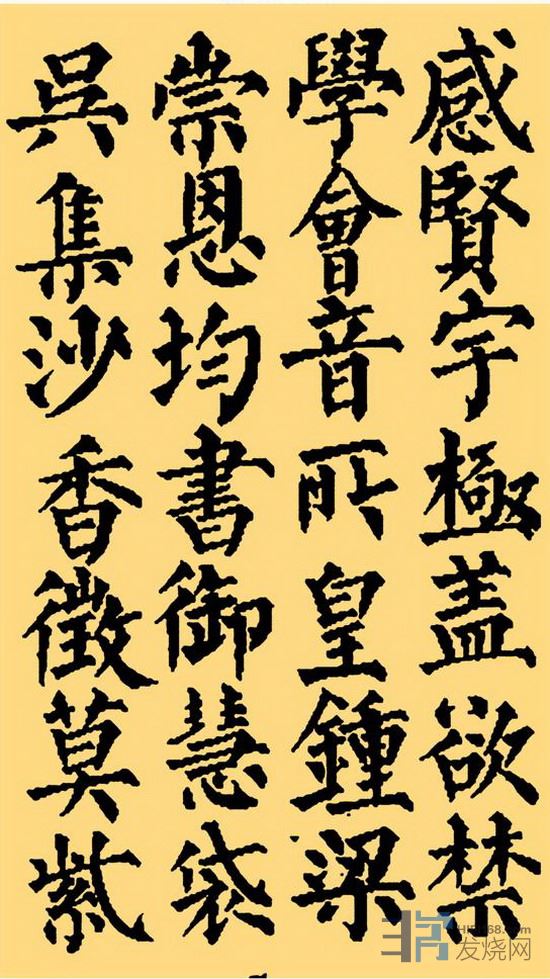 感賢宇極盖欲禁
學會音所皇鍾梁
崇恩均書御慧袋
吳集沙香徵莫紫
HIFI168.com
发烧网